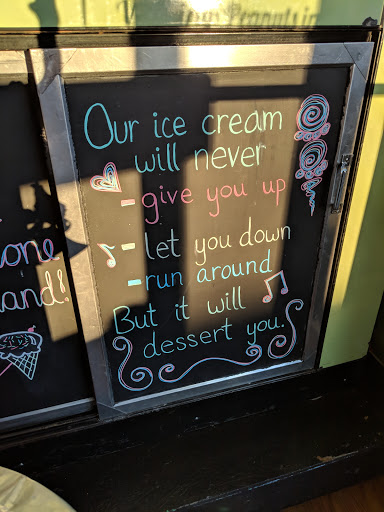 Our ice cream
will never
- give you up
- let you down
- run around
But it will
dessert you.
one
and!